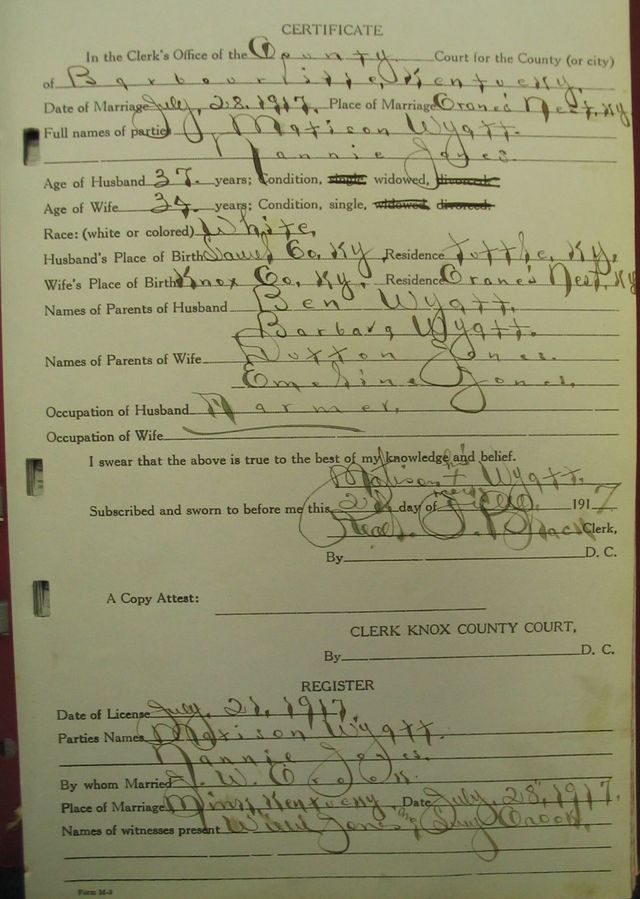 CERTIFICATE
In the Clerk's Office of the County Court for the County (or city)
of Barbourville, Kentucky.
Date of Marriage July, 28, 1917. Place of Marriage Crane's Nest, Ky
Full names of parties Matison Wyatt.
Nannie Jones.
Age of Husband 37. years; Condition, single, widowed, divorced.
Age of Wife 34. years; Condition, single, widowed, divorced.
Race: (white or colored) White,
Husband's Place of Birth Laurel Co, Ky Residence Tuttle, Ky,
Wife's Place of Birth Knox Co, Ky, Residence Crane's Nest, Ky
Names of Parents of Husband Ben Wyatt,
Barbara Wyatt.
Names of Parents of Wife Jones.
Emeline Jones,
Occupation of Husband Farmer,
Occupation of Wife
I swear that the above is true to the best of my knowledge and belief.
Matison Wyatt.
Subscribed and sworn to before me this day of 1917
Clerk,
By D. C.
A Copy Attest:
CLERK KNOX COUNTY COURT,
By D. C.
REGISTER
Date of License July, 21, 1917.
Parties Names Matison Wyatt.
Nannie Jones.
By whom Married J. W.
Place of Marriage Kentucky, Date July, 28, 1917.
Names of witnesses present Jones
Form M-3